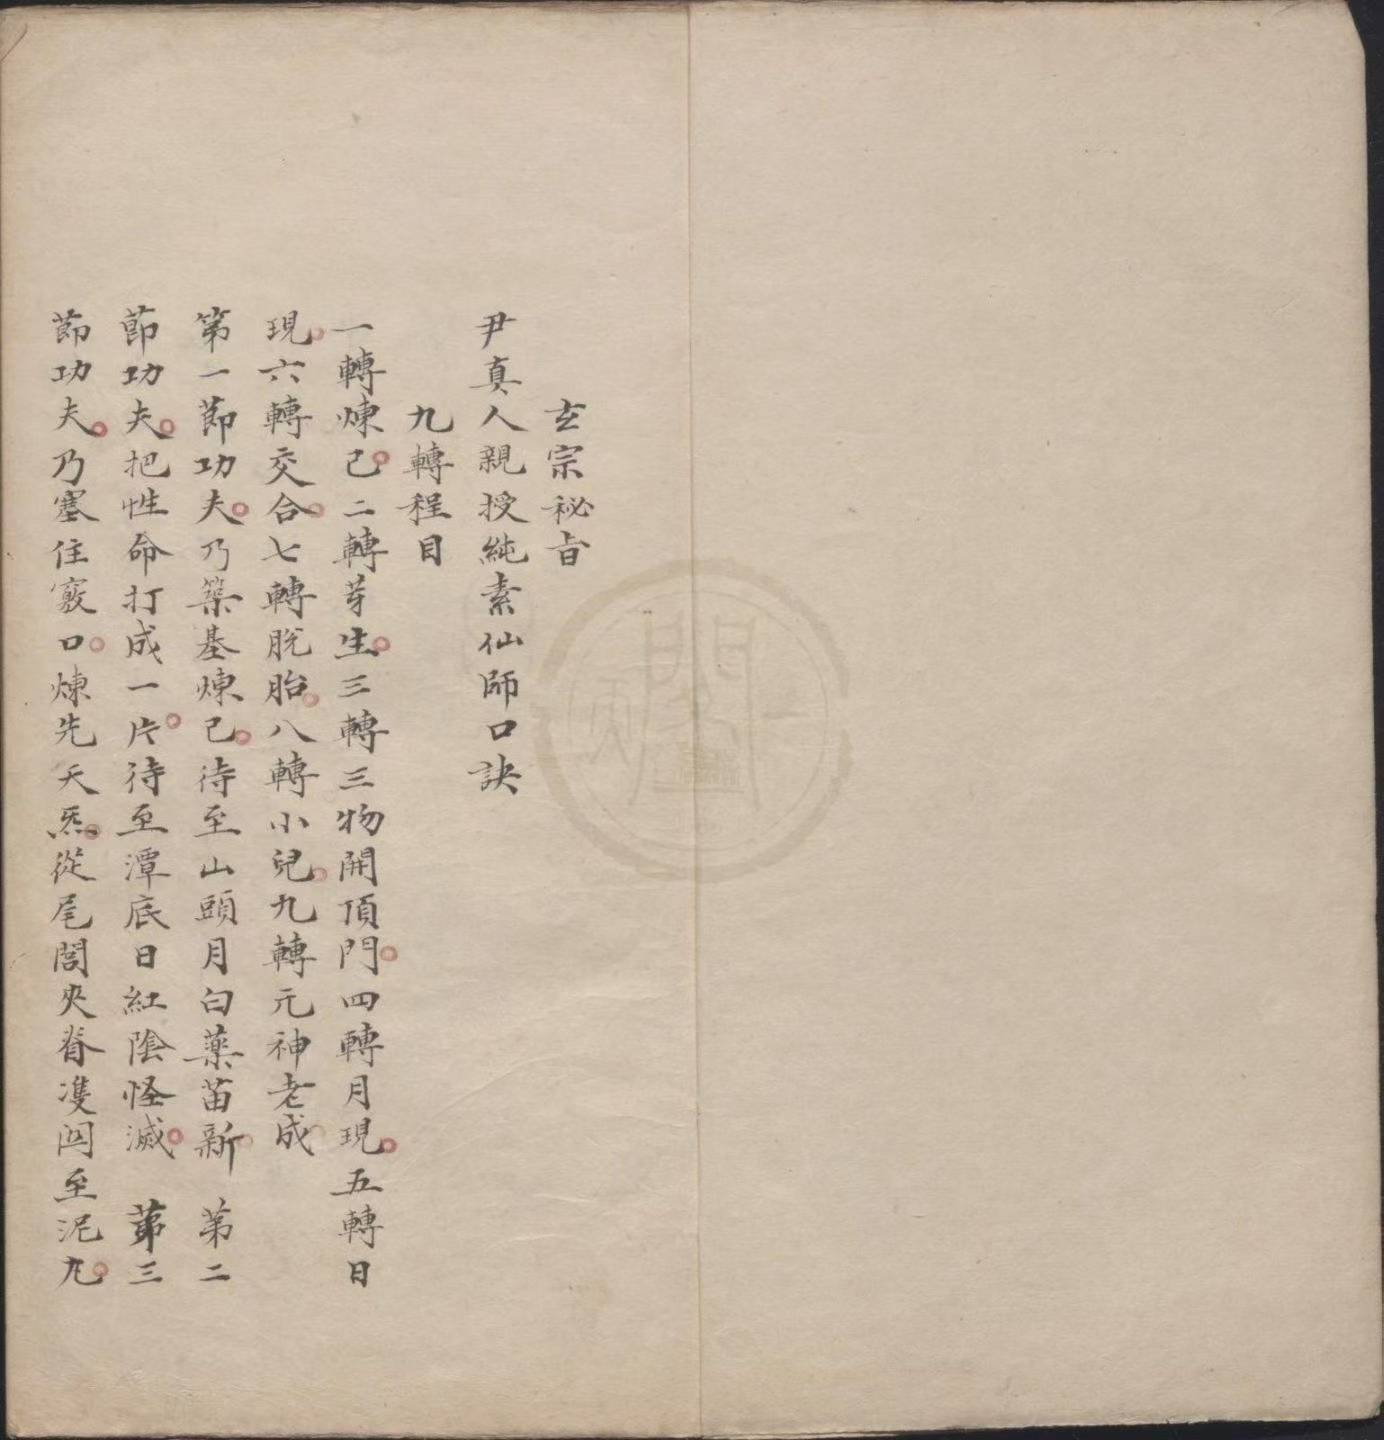 玄宗祕旨
尹真人親授純素仙師口訣
九轉程目
一轉煉己二轉芽生三轉三物開頂門四轉月現五轉日
現六轉交合七轉脫胎八轉小兒九轉元神老成
第一節功夫乃築基煉己待至山頭月白藥苗新　第二
節功夫把性命打成一片待至潭底日紅陰怪滅　第三
節功夫乃塞住竅口煉先天炁從尾閭夾脊雙関至泥丸